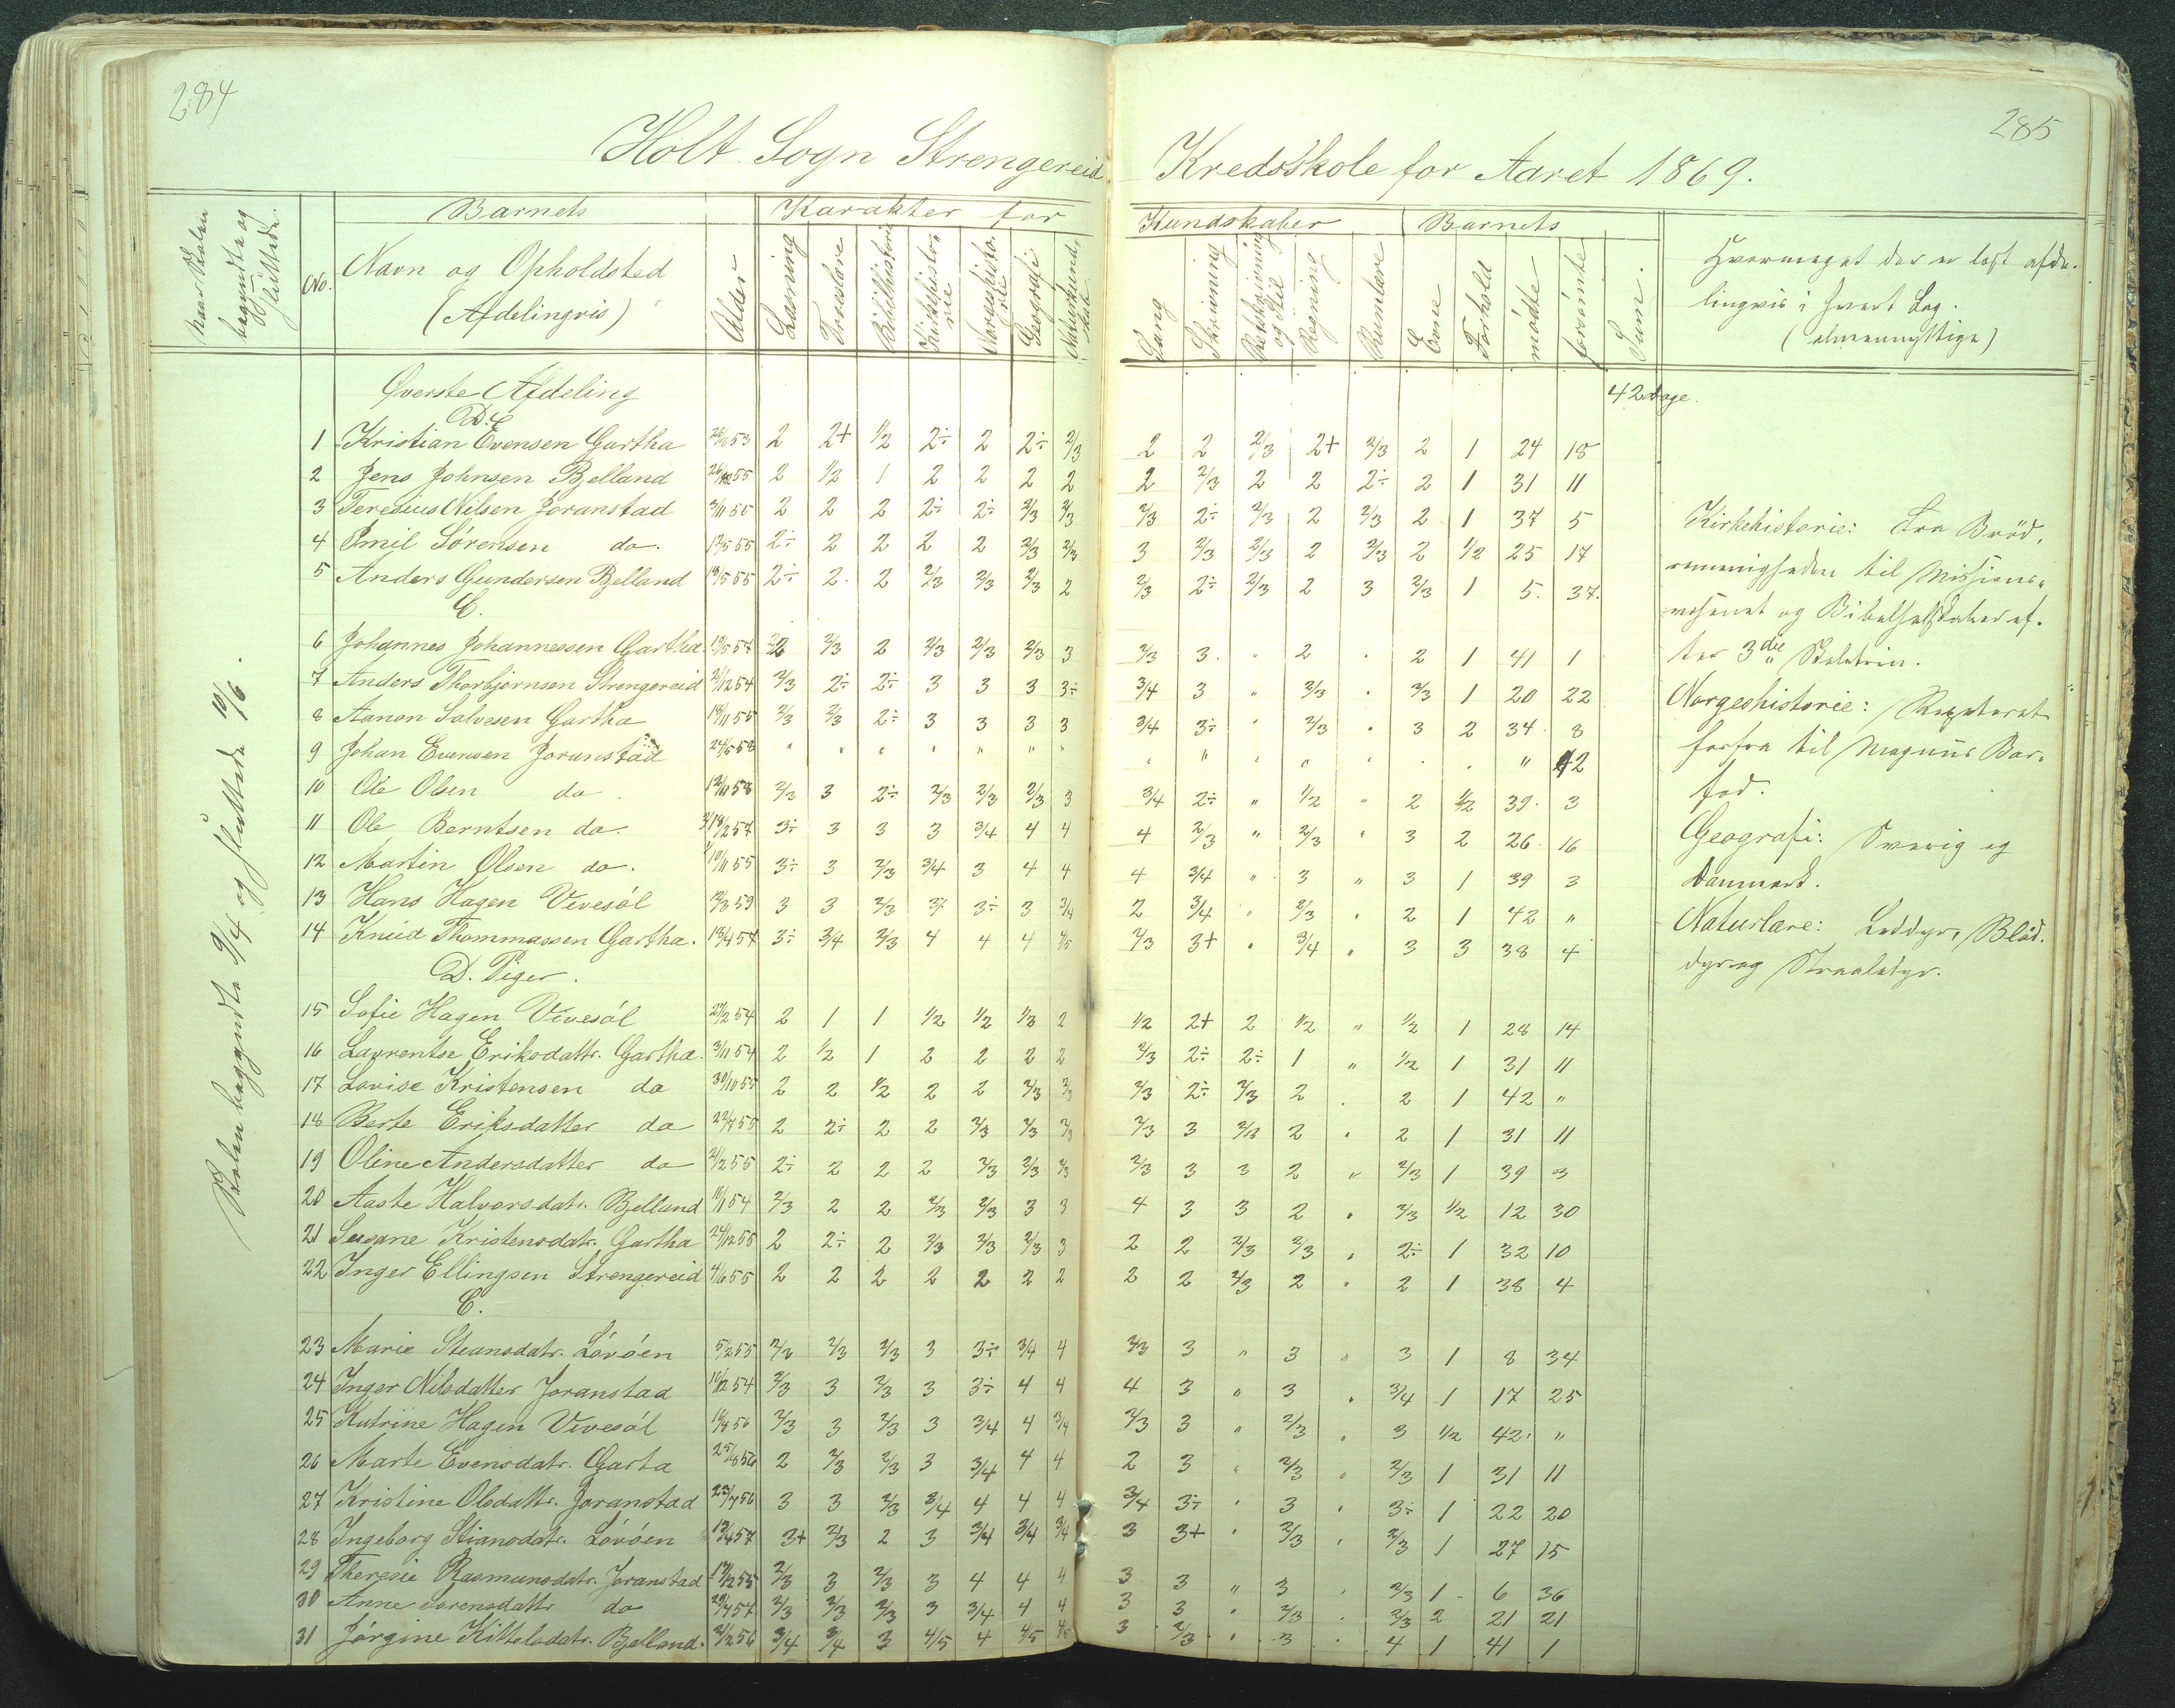 284
285
Holt Sogn Strengereid Kredsskole for Aaret 1869.
Naar Skolen begyndte og sluttede.
No.
Barnets
Navn og Opholdsted
(Afdelingvis)
Alder
Karakter for Kundskaber
Læsning
Troeslære
Bibelhistorie
Kirkehistorie
Norgeshistorie
Geografi
Naturkundskab
Sang
Skrivning
Retskrivning og Stil
Regning
Rumlære
Barnets
Evne
Forhold
mødte
forsømte
Sum.
Hvormeget der er læst afdelingvis i hvert Fag.
(almeennyttige)
Skolen begyndte 9/4 og sluttede 10/6.
Øverste Afdeling
42 Dage.
D.
1 Kristian Evensen Gartha 2 2+ 1/2 2÷ 2 2÷ 2/3 2 2 2/3 2+ 2/3 2 1 24 18
2 Jens Johnsen Bjelland 2 1/2 1 2 2 2 2 2 2/3 2 2 2÷ 2 1 31 11
3 Teresius Nilsen Joranstad 3/11 55 2 2 2 2÷ 2÷ 2/3 2/3 2/3 2÷ 2/3 2 2/3 2 1 37 5
4 Emil Sørensen do. 12/5 55 2÷ 2 2 2 2 2/3 2/3 3 2/3 2/3 2 2/3 2 1/2 25 17
5 Anders Gundersen Bjelland 2÷ 2 2 2/3 2/3 2/3 2 2/3 2÷ 2/3 2 3 2/3 1 5 37
C.
6 Johannes Johannessen Gartha 2/3 2 2/3 2/3 2/3 3 2/3 3 " 2 " 2 1 41 1
7 Anders Thorbjørnsen Strengereid 2/12 54 2/3 2÷ 2÷ 3 3 3 3÷ 3/4 3 " 2/3 " 2/3 1 20 22
8 Aanon Salvesen Gartha 2/3 2/3 2÷ 3 3 3 3 3/4 3÷ " 2/3 " 3 2 34 8
9 Johan Evensen Joranstad " " " " " " " " " " " " " " " 42
10 Ole Olsen do. 2/3 3 2÷ 2/3 2/3 2/3 3 3/4 2÷ " 1/2 " 2 1/2 39 3
11 Ole Berntsen do. 3÷ 3 3 3 3/4 4 4 4 2/3 " 2/3 " 3 2 26 16
12 Martin Olsen do. 10/11 55 3÷ 3 2/3 3/4 3 4 4 4 3/4 " 3 " 3 1 39 3
13 Hans Hagen Vevesøl 3 3 2/3 3÷ 3÷ 3 3/4 2 3/4 " 2/3 " 2 1 42 "
14 Knud Thommassen Gartha. 3÷ 3/4 2/3 4 4 4 4/5 2/3 3+ " 3/4 " 3 3 38 4
D. Piger.
15 Sofie Hagen Vevesøl 27/2 54 2 1 1 1/2 1/2 1/3 2 1/2 2+ 2 1/2 " 1/2 1 28 14
16 Laurentse Eriksdattr. Gartha. 3/11 54 2 1/2 1 2 2 2 2 2/3 2÷ 2÷ 1 " 1/2 1 31 11
17 Lovise Kristensen do 30/10 55 2 2 1/2 2 2 2/3 2/3 2/3 2÷ 2/3 2 " 2 1 42 "
18 Berte Eriksdatter do 22/7 55 2 2÷ 2 2 2/3 2/3 2/3 2/3 3 2/3 2 " 2 1 31 11
19 Oline Andersdatter do 2/2 55 2÷ 2 2 2 2/3 2/3 2/3 2/3 3 3 2 " 2/3 1 39 3
20 Aaste Halvorsdatr. Bjelland 2/3 2 2 2/3 2/3 3 3 4 3 3 2 " 2/3 1/2 12 30
21 Susane Kristensdatr. Gartha 24/12 55 2 2÷ 2 2/3 2/3 2/3 3 2 2 2/3 2/3 " 2÷ 1 32 10
22 Inger Ellingsen Strengereid 4/6 55 2 2 2 2 2 2 2 2 2 2/3 2 " 2 1 38 4
C.
23 Marie Steansdatr. Løvøen 5/2 55 2/3 2/3 2/3 3 3÷ 3/4 4 2/3 3 " 3 " 3 1 8 34
24 Inger Nilsdatter Joranstad 2/3 3 2/3 3 3÷ 4 4 4 3 " 3 " 3/4 1 17 25
25 Katrine Hagen Vevesøl 2/3 3 2/3 3 3/4 4 3/4 2/3 3 " 2/3 " 3 1/2 42 "
26 Marte Evensdatr. Garta 2 2/3 2/3 3 3/4 4 4 2 3 " 2/3 " 2/3 1 31 11
27 Kristine Olsdattr. Joranstad 23/7 56 3 3 2/3 3/4 4 4 4 3/4 3÷ " 3 " 3÷ 1 22 20
28 Ingeborg Stiansdatr. Løvøen 3+ 2/3 2 3 3/4 3/4 3/4 3 3+ " 2/3 " 2/3 1 27 15
29 Theresie Rasmunsdatr. Joranstad 2/3 3 2/3 3 4 4 4 3 3 " 3 " 2/3 1 6 36
30 Anne Sørensdattr do 29/7 57 2/3 2/3 2/3 3 3/4 4 4 3 3 " 2/3 " 2/3 2 21 21
31 Jørgine Kittelsdatr. Bjelland. 3/4 3/4 3 4/5 4 4/5 4/5 3 2/3 " 3 " 4 1 41 1
Kirkehistorie: Fra Brød-
remenigheden til Missions-
væsenet og Bibelselskaber ef-
ter 3die Skoletrin.
Norgeshistorie: Repeteret
forfra til Magnus Bar-
fod.
Geografi: Sverig og
Danmark.
Naturlære: Leddyr, Blød-
dyr og Straaledyr.